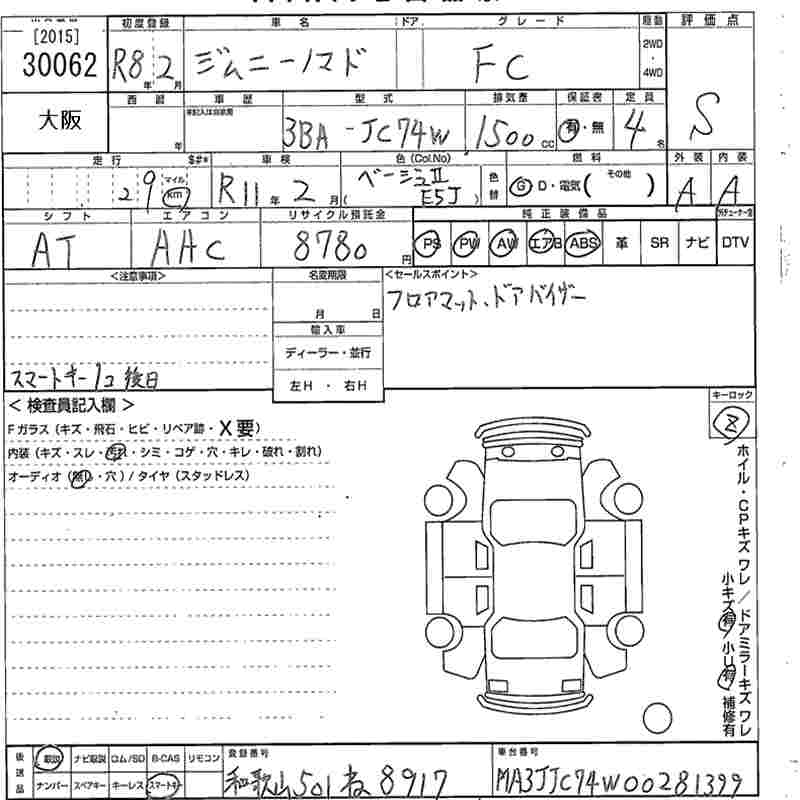 [2015]
30062
大阪
初度登録 車名 ドア グレード 駆動 評価点
R8年 2月 ジムニーノマド FC 2WD・4WD S
西暦 車歴 型式 排気量 保証書 定員
年 未記入は自家用 3BA-JC74W 1500cc 有・無 4名
走行 $#* 車検 色(Col.No) 燃料 外装 内装
29 マイル km R11年 2月 (ベージュII E5J) 色替 G D・電気( その他 ) A A
シフト エアコン リサイクル預託金 純正装備品
AT AAC 8780円 PS PW AW エアB ABS 革 SR ナビ DTV
<注意事項> 名変期限 <セールスポイント>
月 日 フロアマット、ドアバイザー
輸入車
ディーラー・並行
スマートキー1コ後日 左H・右H
<検査員記入欄> キーロック
2
Fガラス(キズ・飛石・ヒビ・リペア跡・X要)
内装(キズ・スレ・汚れ・シミ・コゲ・穴・キレ・破れ・割れ)
オーディオ(無し・穴)/タイヤ(スタッドレス)
ホイル・CPキズワレ/ドアミラーキズワレ
小キズ有 小U有 補修有
後送品 取説 ナビ取説 ロム/SD B-CAS リモコン 登録番号 車台番号
ナンバー スペアキー キーレス スマートキー 和歌山501ね8917 MA3JJC74W00281399